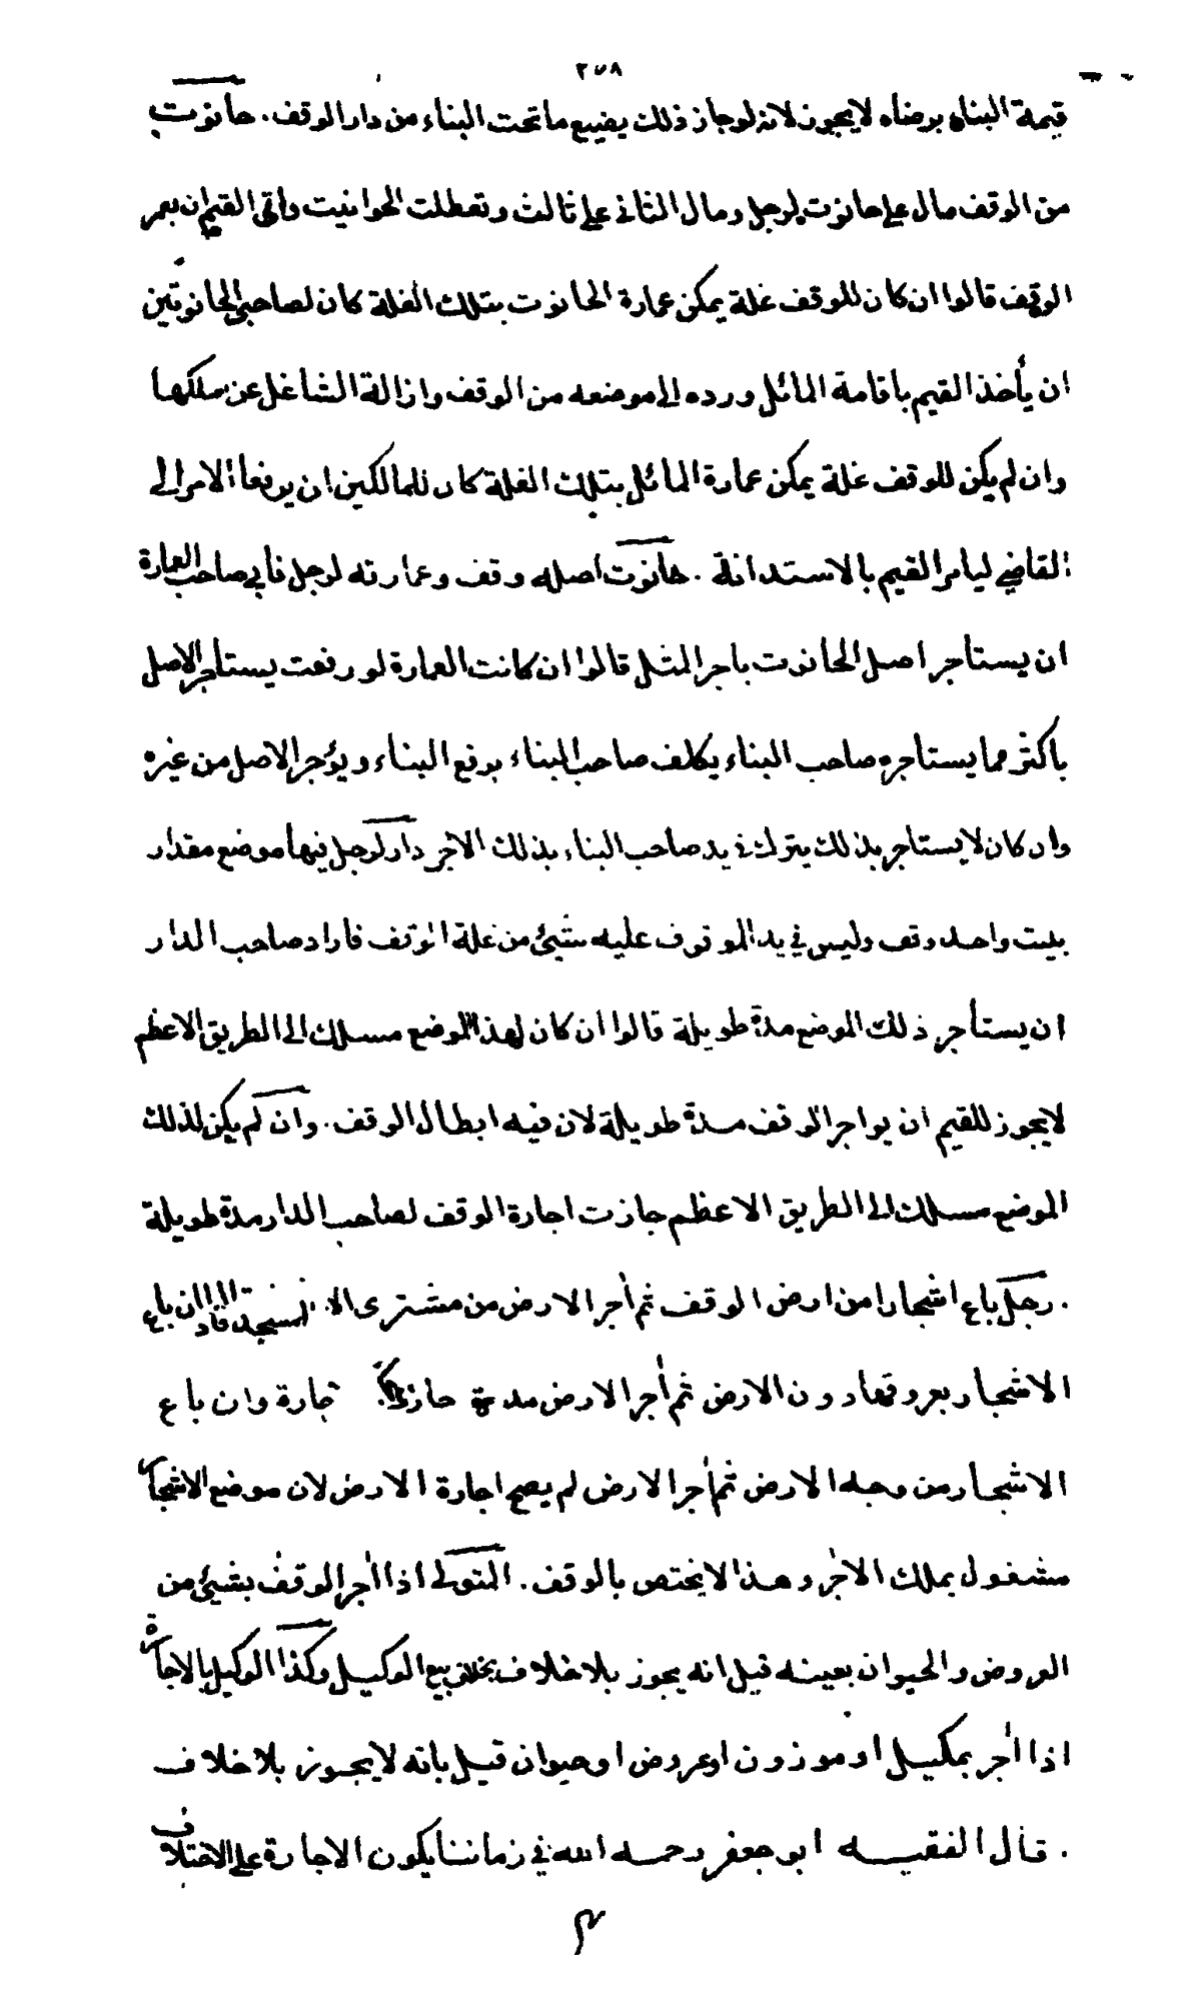 ٢٥٨
قيمة البناء برضاه لايجوز لانه لوجاز ذلك يضيع ما تحت البناء من دار الوقف . حانوت
من الوقف مال على حانوت لرجل ومال الثانى على ثالث وتعطلت الحوانيت وابى القيم ان يعمر
الوقف قالوا ان كان للوقف غلة يمكن عمارة الحانوت بتلك الغلة كان لصاحبى الحانوتين
ان يأخذ القيم باقامة المائل ورده الى موضعه من الوقف وازالة الشاغل عن ملكهما
وان لم يكن للوقف غلة يمكن عمارة المائل بتلك الغلة كان للمالكين ان يرفعا الامر الى
القاضي ليامر القيم بالاستدانة . حانوت اصله وقف وعمارته لرجل فابى صاحب العمارة
ان يستاجر اصل الحانوت باجر المثل قالوا ان كانت العمارة لو رفعت يستأجر الاصل
باكثر مما يستاجره صاحب البناء يكلف صاحب البناء برفع البناء ويؤجر الاصل من غيره
وان كان لايستاجر بذلك يترك فى يد صاحب البناء بذلك الاجر دار لرجل فيها موضع مقدار
بيت واحد وقف وليس في يد الموقوف عليه شيئ من غلة الوقف فاراد صاحب الدار
ان يستأجر ذلك الموضع مدة طويلة قالوا ان كان لهذا الموضع مسلك الى الطريق الاعظم
لايجوز للقيم ان يواجر الوقف مدة طويلة لان فيه ابطال الوقف . وان لم يكن لذلك
الموضع مسلك الى الطريق الاعظم جازت اجارة الوقف لصاحب الدار مدة طويلة
. رجل باع اشجارا من ارض الوقف ثم أجر الارض من مشترى ان باع
الاشجار بعروقها دون الارض ثم أجر الارض مدة جارة وان باع
الاشجار من وجه الارض ثم أجر الارض لم يصح اجارة الارض لان موضع الاشجار
مشغول بملك الاجر وهذا لا يختص بالوقف . المتولى اذا أجر الوقف بشيئ من
العروض والحيوان بعينه قيل انه يجوز بلا خلاف بخلاف بيع الوكيل وكذا الوكيل بالاجارة
اذا أجر بمكيل او موزون او عروض او حيوان قيل بانه لايجوز بلا خلاف
. قال الفقيه ابو جعفر رحمه الله في زماننا يكون الاجارة على الاختلاف